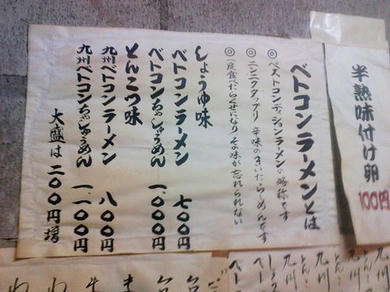 半熟味付け卵
100円
ベトコンラーメンとは
◎ベストコンディションラーメンの略称です
◎ニンニクタップリ 辛味のきいたらーめんです
◎一度食べたらくせになり その味が忘れられない
しょうゆ味
ベトコンラーメン 七〇〇円
ベトコンちゃしゅうめん 一、〇〇〇円
とんこつ味
九州ベトコンラーメン 八〇〇円
九州ベトコンちゃしゅうめん 一、一〇〇円
大盛は二〇〇円増
九州